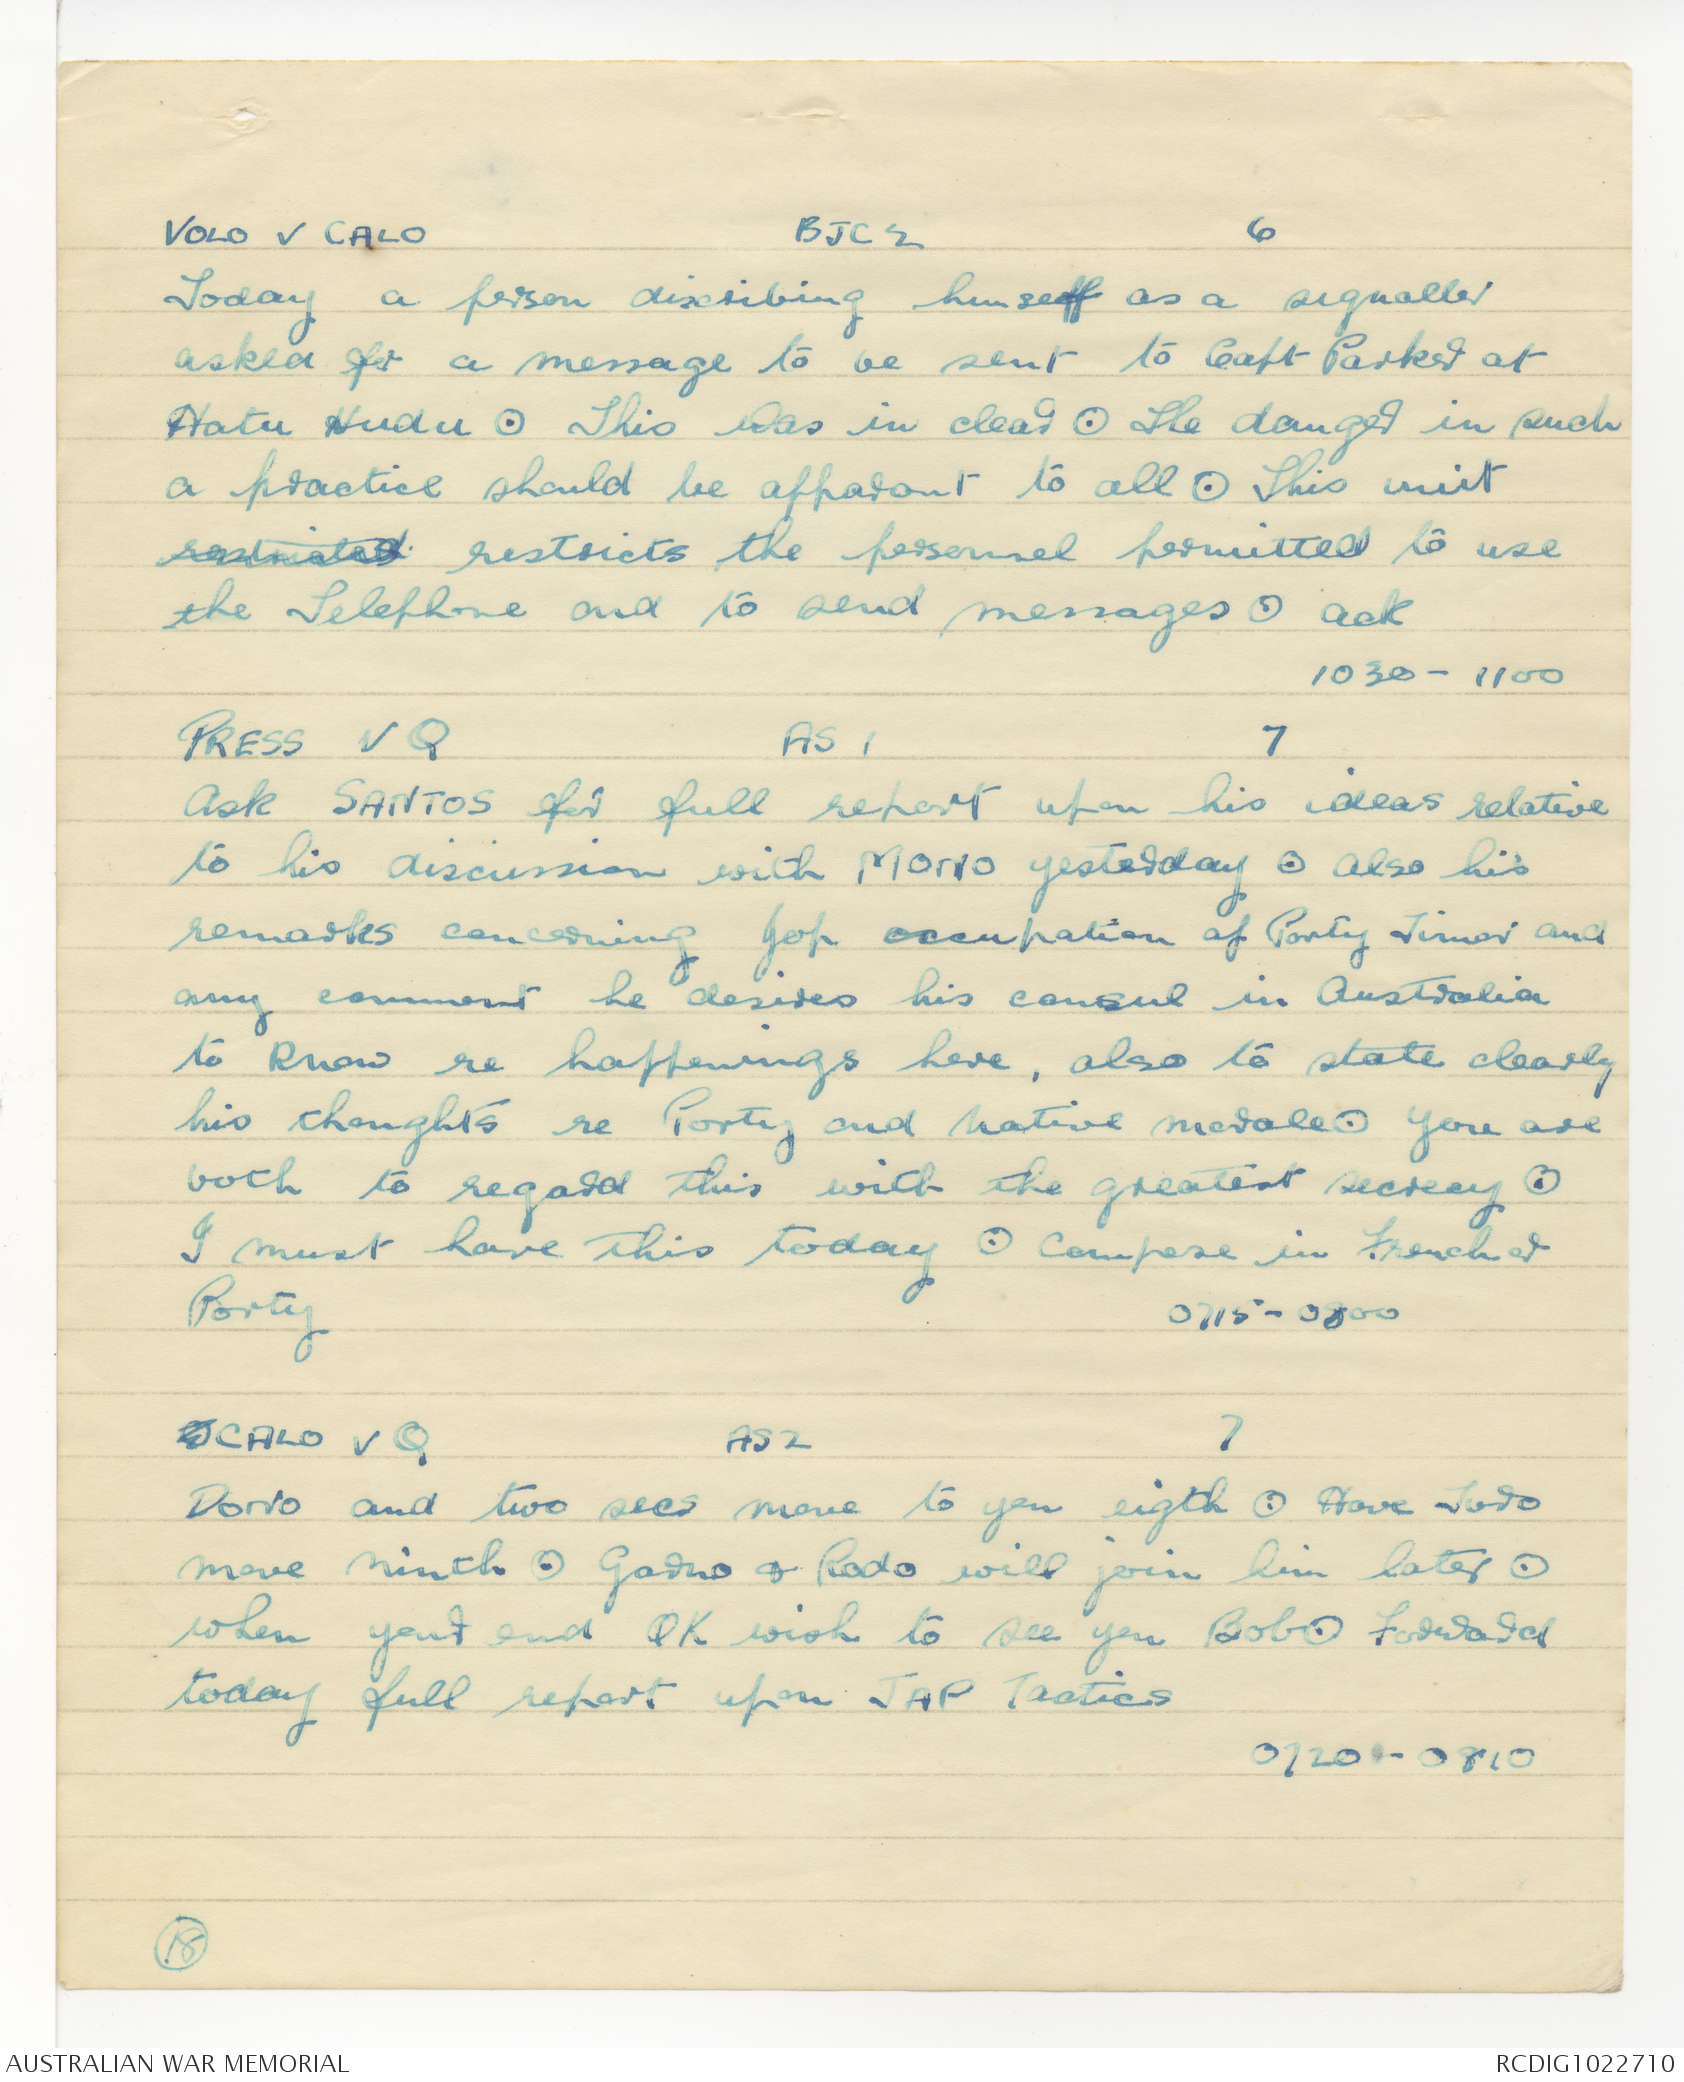 VOLO V CALO BJC 2 6
Today a person discribing himself as a signaller
asked for a message to be sent to Capt Parker at
Hatu Hudu ⊙ This was in clear ⊙ The danger in such
a practice should be apparant to all ⊙ This unit
restricted restricts the personnel permitted to use
the Telephone and to send messages ⊙ ack
1030 - 1100
PRESS V Q AS 1 7
Ask SANTOS for full report upon his ideas relative
to his discussion with MORO yesterday ⊙ also his
remarks concerning Jap occupation of Porty Timor and
any comment he desires his consul in Australia
to know re happenings here, also to state clearly
his thoughts re Porty and native morale ⊙ you are
both to regard this with the greatest secrecy ⊙
I must have this today ⊙ compose in French or
Porty 0715 - 0800
CALO V Q AS 2 7
DORO and two secs move to you eigth ⊙ Have Todo
move ninth ⊙ Garno & Rodo will join him later ⊙
when your end OK wish to see you Bob ⊙ Forward
today full report upon JAP Tactics
0720 - 0810
18
AUSTRALIAN WAR MEMORIAL RCDIG1022710